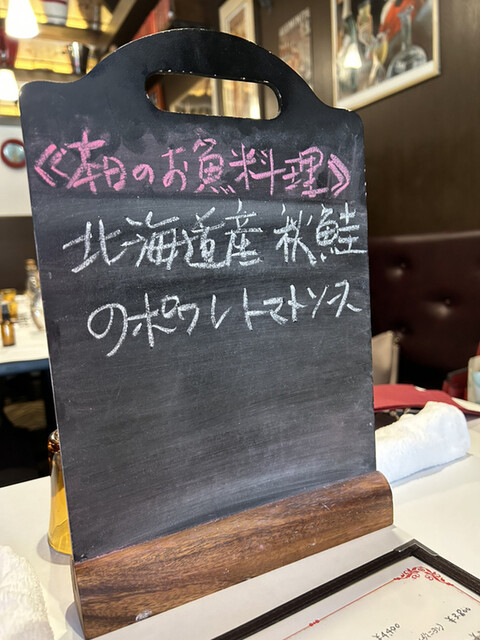 《本日のお魚料理》
北海道産 秋鮭
のポワレトマトソース
¥4400
¥3800